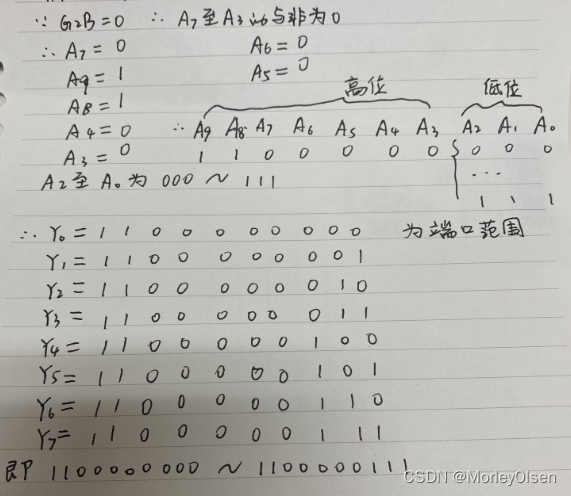 ∵ G2B=0 ∴ A7至A3 与非为0
∴ A7 = 0 A6 = 0
A9 = 1 A5 = 0
A8 = 1 高位 低位
A4 = 0 ∴ A9 A8 A7 A6 A5 A4 A3 A2 A1 A0
A3 = 0 1 1 0 0 0 0 0 { 0 0 0
A2 至 A0 为 000 ~ 111 ...
1 1 1
∴ Y0 = 1 1 0 0 0 0 0 0 0 0 为端口范围
Y1 = 1 1 0 0 0 0 0 0 0 1
Y2 = 1 1 0 0 0 0 0 0 1 0
Y3 = 1 1 0 0 0 0 0 0 1 1
Y4 = 1 1 0 0 0 0 0 1 0 0
Y5 = 1 1 0 0 0 0 0 1 0 1
Y6 = 1 1 0 0 0 0 0 1 1 0
Y7 = 1 1 0 0 0 0 0 1 1 1
即 1100000000 ~ 1100000111
CSDN @MorleyOlsen